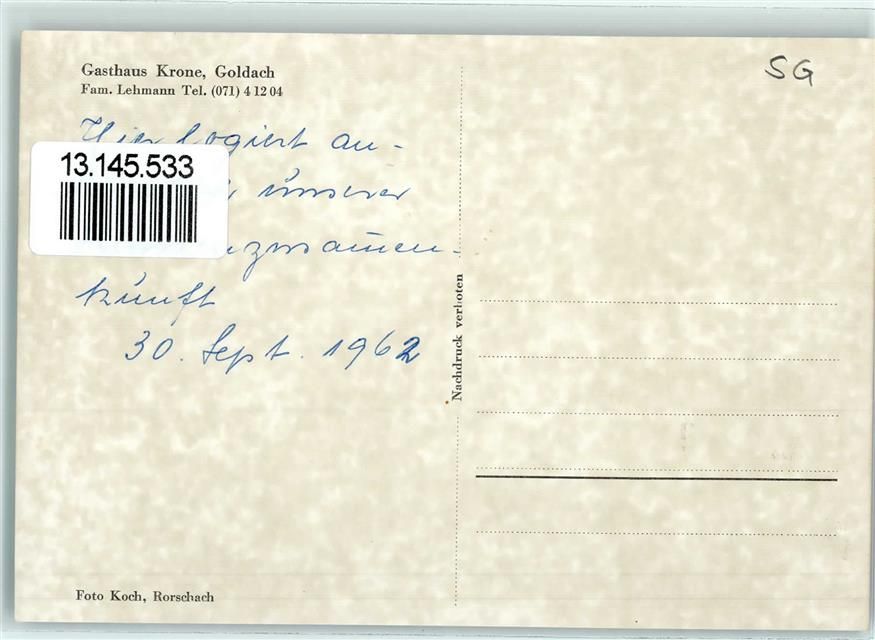 Gasthaus Krone, Goldach
Fam. Lehmann Tel. (071) 4 12 04
SG
Hier logiert an-
13.145.533
unserer
kunft
30. Sept. 1962
Nachdruck verboten
Foto Koch, Rorschach